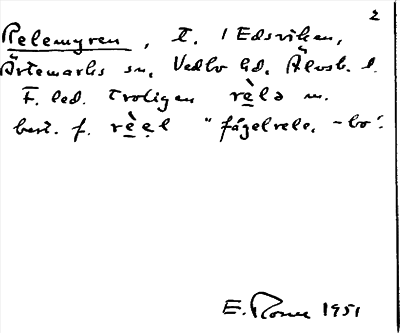 2
Relemyren, t. i Edsviken,
Ärtemarks sn, Vedbo hd, Älvsb. l.
F. led. Troligen rè̱lə m.
best. f. rè̱ẹl "fågelrele, -bo".
E. 1951